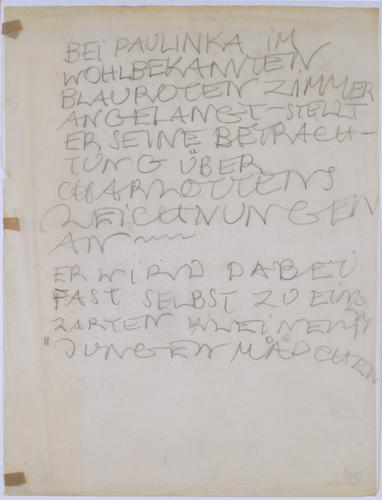 BEI PAULINKA IM
WOHLBEKANNTEN
BLAUROTEN ZIMMER
ANGELANGT - STELLT
ER SEINE BETRACH-
TUNG ÜBER
CHARLOTTENS
ZEICHNUNGEN
AN
ER WIRD DABEI
FAST SELBST ZU EINEM
ZARTEN KLEINEN
"JUNGEN MÄDCHEN